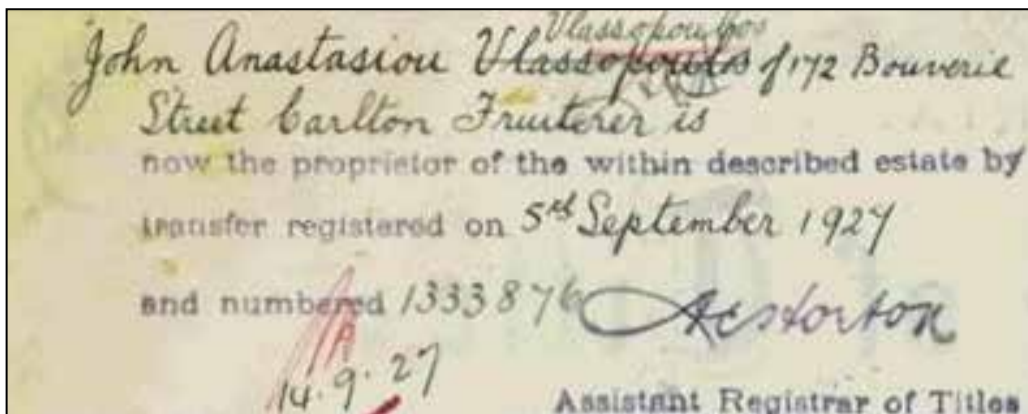 Vlassopoulos
John Anastasiou Vlassopoulos of 172 Bouverie
Street Carlton Fruiterer is
now the proprietor of the within described estate by
transfer registered on 5th September 1927
and numbered 1333876
14.9.27
Assistant Registrar of Titles